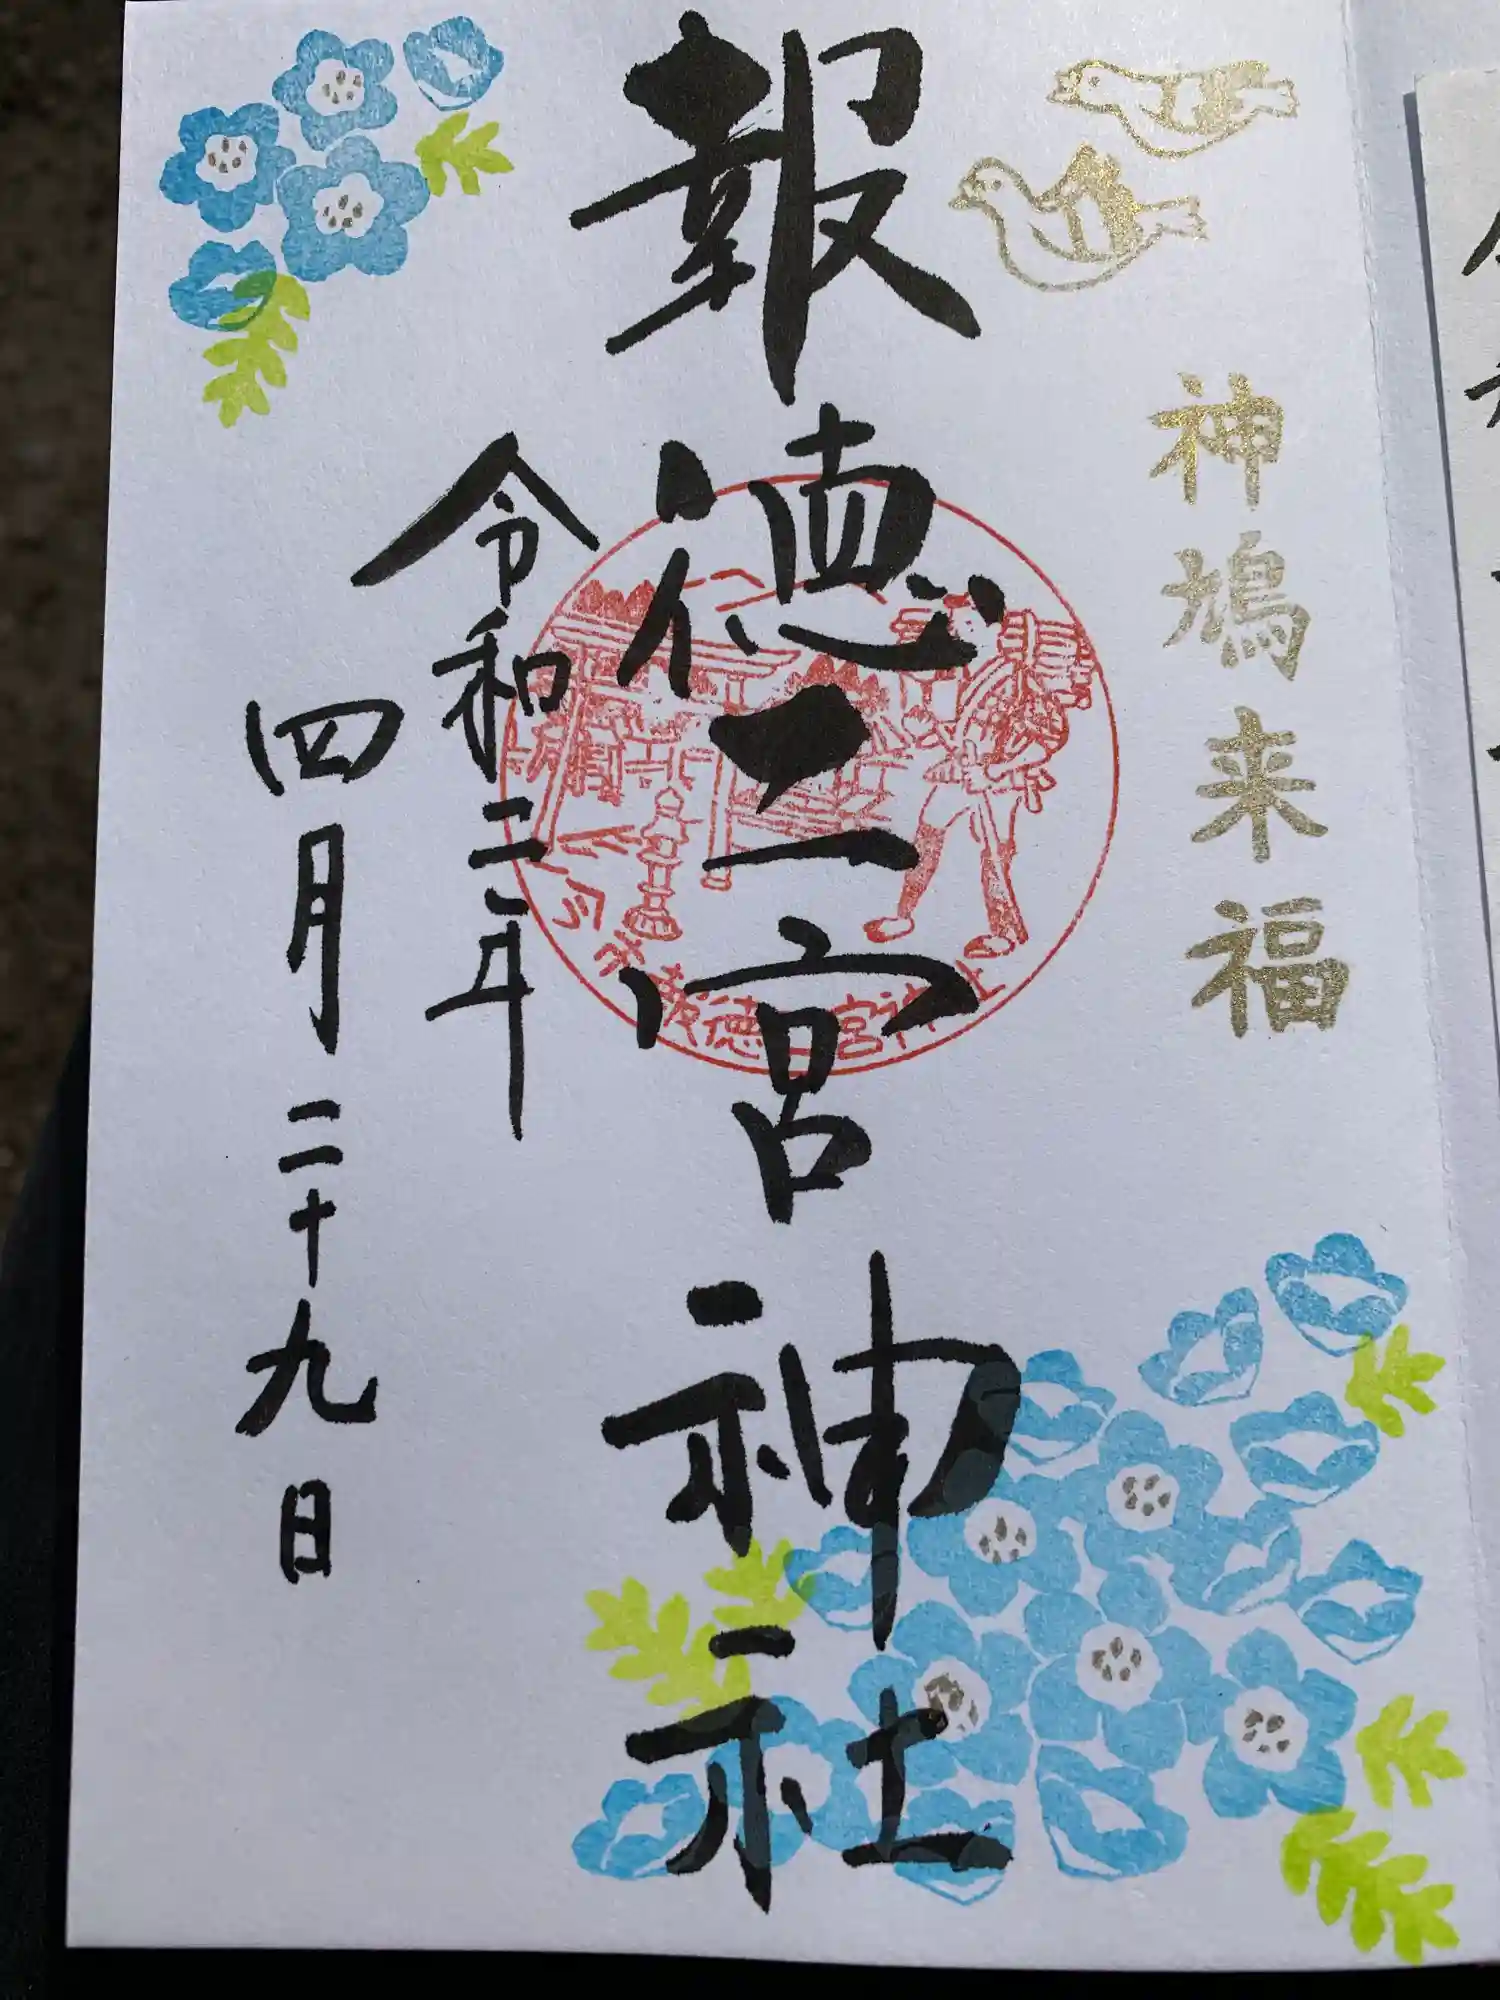 神鳩来福
報徳二宮神社
今市報徳二宮神社
令和二年
四月二十九日